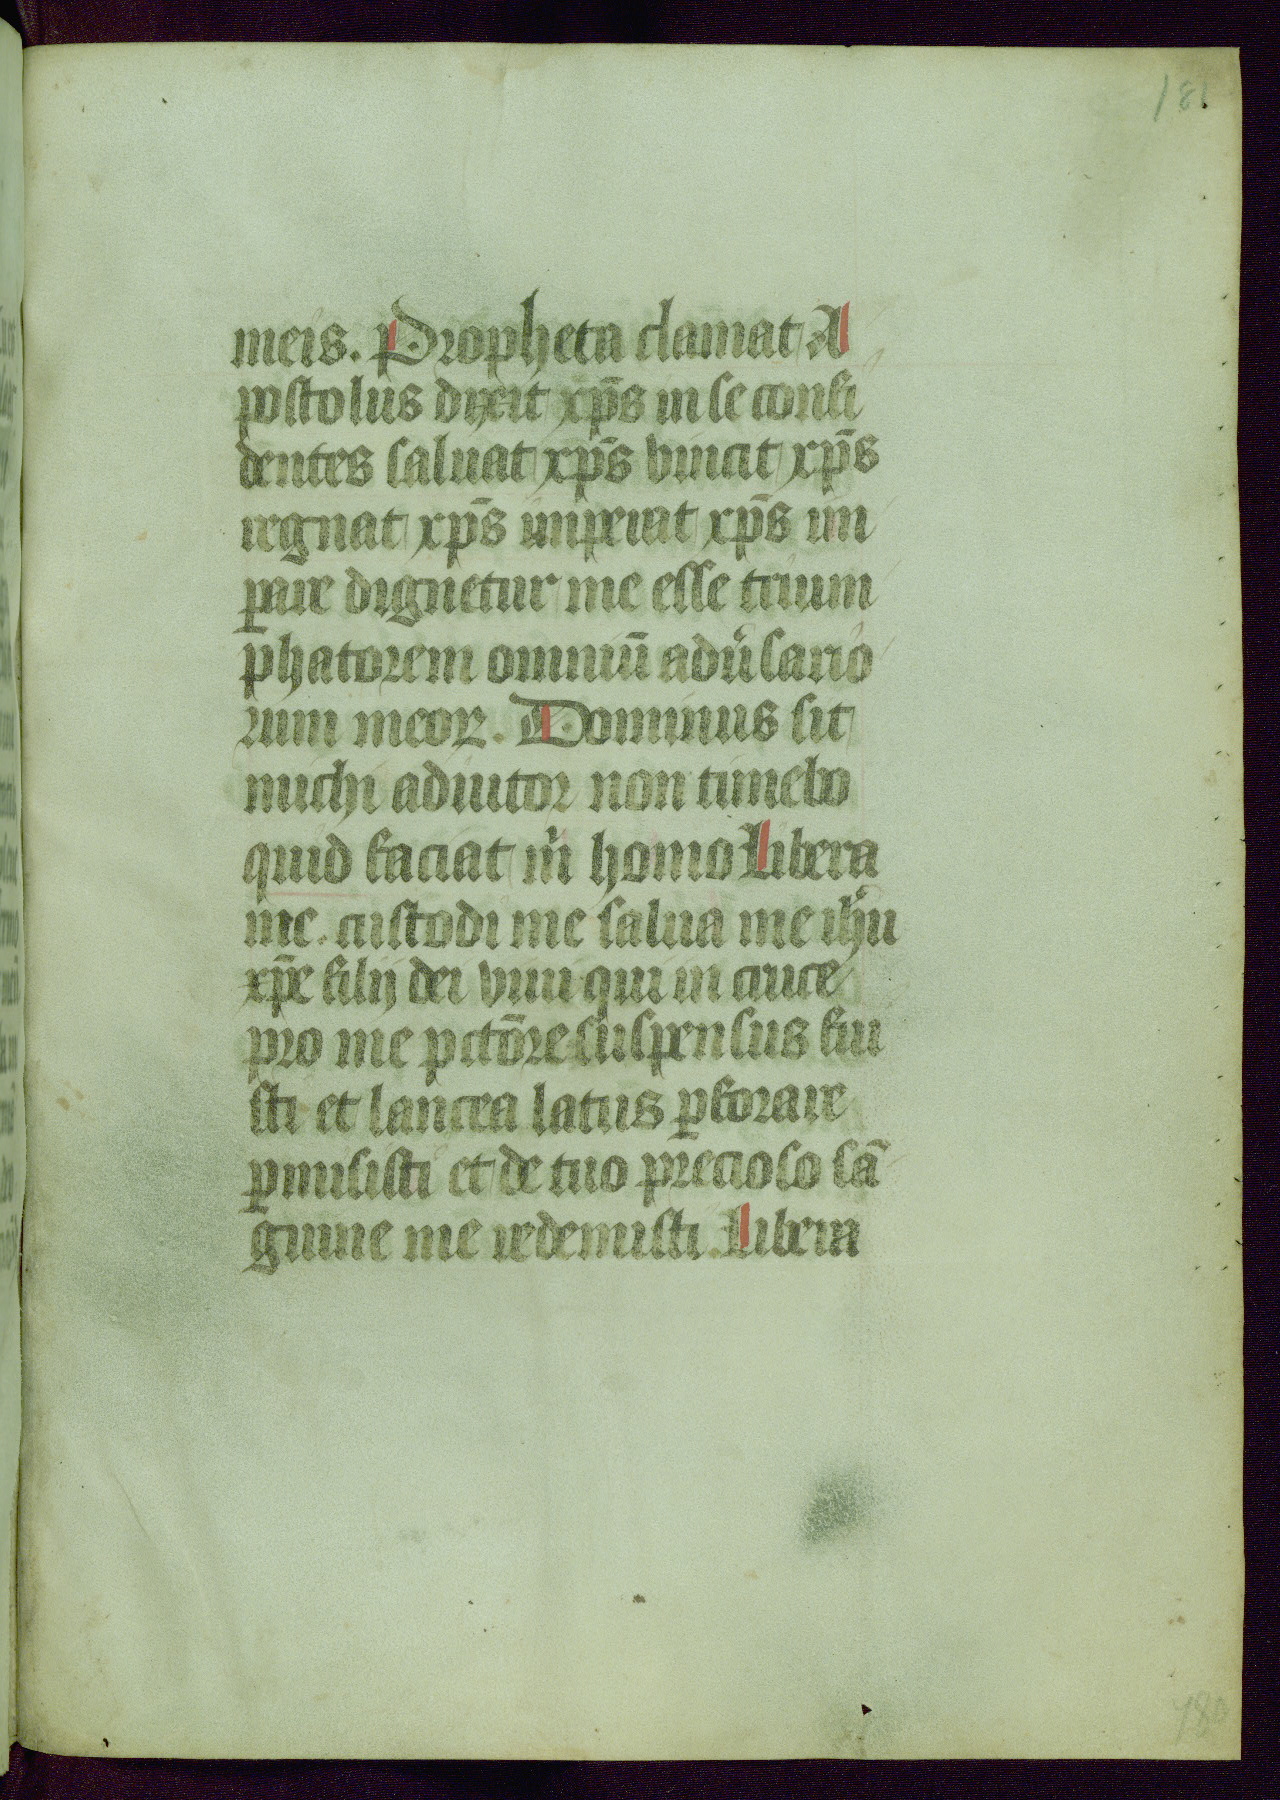 181
meis. Propheta clamat A
postolus dixit xp̄s in se confi
dentes saluat xp̄s vincit xp̄s
regnat xp̄s imperat xp̄s im
ꝑare dignetur me esse trium
phatorem omniū adu̾sario
rum meoꝝ. Dominus sit
michi adiutor non timebo
quid faciat m̄ homo Libera
me. custodi me salua me ihu̾
xp̄e filij dei viui qui in cruce
pro me pctōre suspensus fui
sti et lancea latus ꝑforare
ꝑmisisti et de tuo precioso sā
guine me redemisti. Libera
180